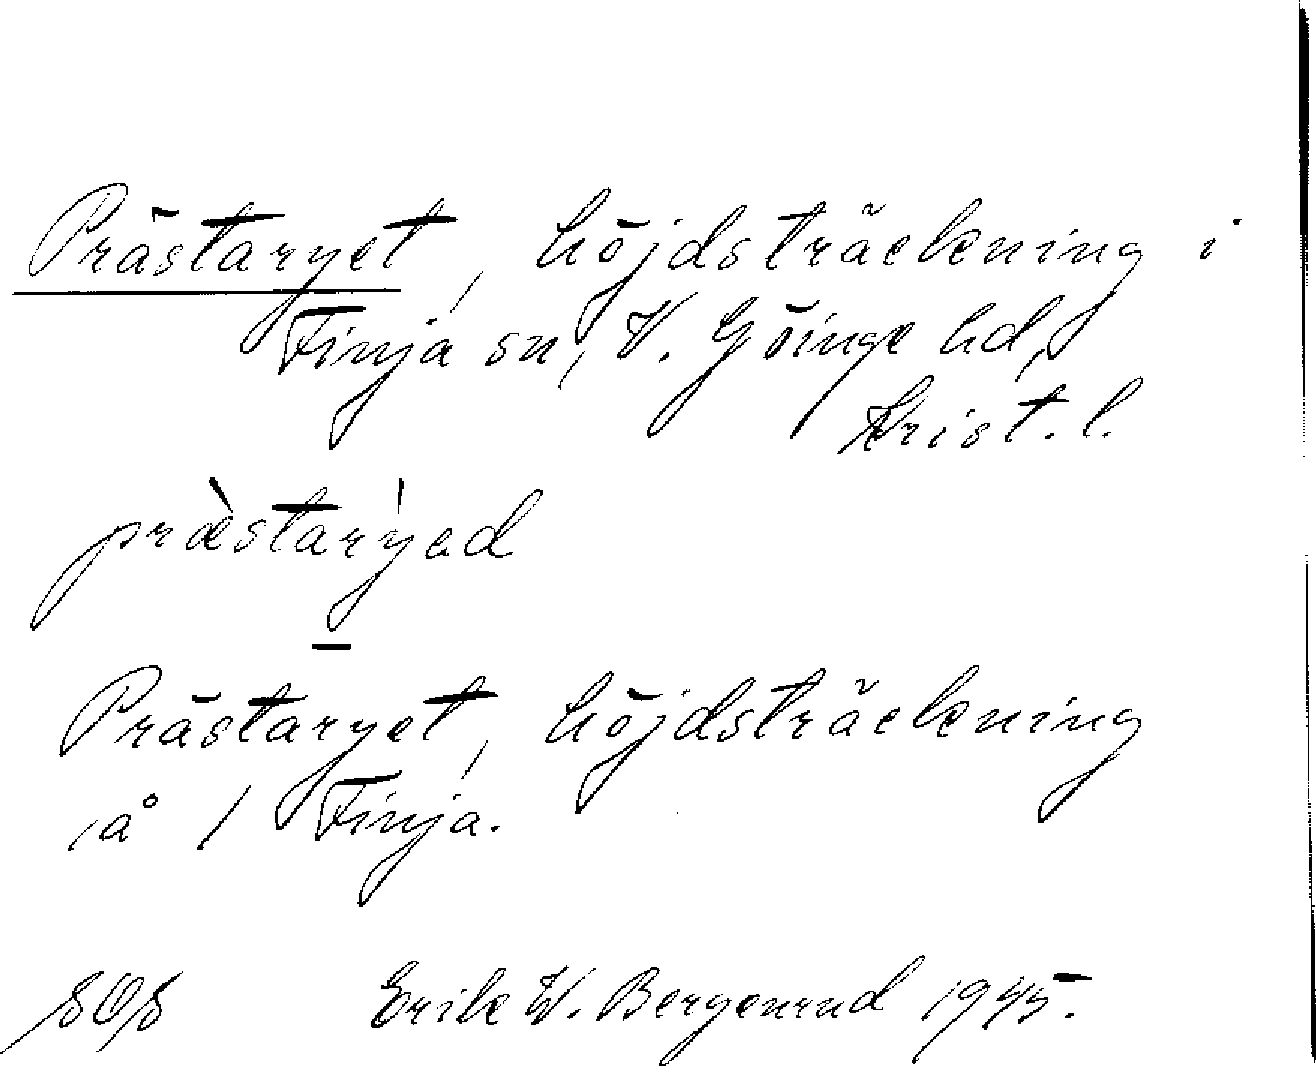 Prästaryet, höjdsträckning i
Finja sn, V. Göinge hd,
Krist. l.
præ̀starýed
Prästaryet, höjdsträckning
å 1 Finja.
SOS Erik W. Bergenrud 1945.